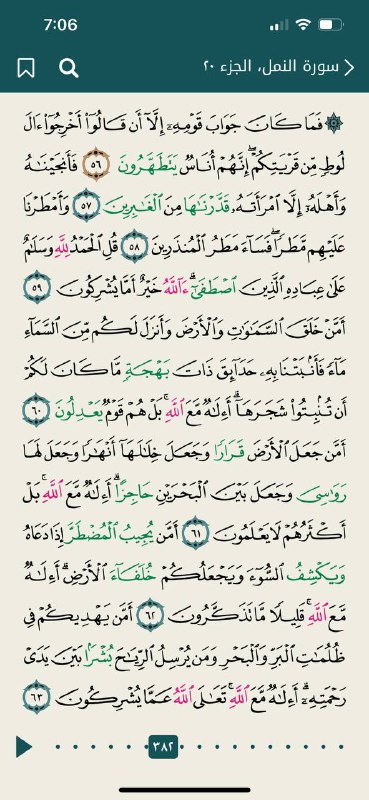 7:06
سورة النمل، الجزء ٢٠
۞ فَمَا كَانَ جَوَابَ قَوْمِهِۦٓ إِلَّآ أَن قَالُوٓا۟ أَخْرِجُوٓا۟ ءَالَ
لُوطٍ مِّن قَرْيَتِكُمْ ۖ إِنَّهُمْ أُنَاسٌ يَتَطَهَّرُونَ ٥٦ فَأَنجَيْنَـٰهُ
وَأَهْلَهُۥٓ إِلَّا ٱمْرَأَتَهُۥ قَدَّرْنَـٰهَا مِنَ ٱلْغَـٰبِرِينَ ٥٧ وَأَمْطَرْنَا
عَلَيْهِم مَّطَرًا ۖ فَسَآءَ مَطَرُ ٱلْمُنذَرِينَ ٥٨ قُلِ ٱلْحَمْدُ لِلَّهِ وَسَلَـٰمٌ
عَلَىٰ عِبَادِهِ ٱلَّذِينَ ٱصْطَفَىٰٓ ۗ ءَآللَّهُ خَيْرٌ أَمَّا يُشْرِكُونَ ٥٩
أَمَّنْ خَلَقَ ٱلسَّمَـٰوَٰتِ وَٱلْأَرْضَ وَأَنزَلَ لَكُم مِّنَ ٱلسَّمَآءِ
مَآءً فَأَنۢبَتْنَا بِهِۦ حَدَآئِقَ ذَاتَ بَهْجَةٍ مَّا كَانَ لَكُمْ
أَن تُنۢبِتُوا۟ شَجَرَهَآ ۗ أَءِلَـٰهٌ مَّعَ ٱللَّهِ ۚ بَلْ هُمْ قَوْمٌ يَعْدِلُونَ ٦٠
أَمَّن جَعَلَ ٱلْأَرْضَ قَرَارًا وَجَعَلَ خِلَـٰلَهَآ أَنْهَـٰرًا وَجَعَلَ لَهَا
رَوَٰسِىَ وَجَعَلَ بَيْنَ ٱلْبَحْرَيْنِ حَاجِزًا ۗ أَءِلَـٰهٌ مَّعَ ٱللَّهِ ۚ بَلْ
أَكْثَرُهُمْ لَا يَعْلَمُونَ ٦١ أَمَّن يُجِيبُ ٱلْمُضْطَرَّ إِذَا دَعَاهُ
وَيَكْشِفُ ٱلسُّوٓءَ وَيَجْعَلُكُمْ خُلَفَآءَ ٱلْأَرْضِ ۗ أَءِلَـٰهٌ
مَّعَ ٱللَّهِ ۚ قَلِيلًا مَّا تَذَكَّرُونَ ٦٢ أَمَّن يَهْدِيكُمْ فِى
ظُلُمَـٰتِ ٱلْبَرِّ وَٱلْبَحْرِ وَمَن يُرْسِلُ ٱلرِّيَـٰحَ بُشْرًۢا بَيْنَ يَدَىْ
رَحْمَتِهِۦٓ ۗ أَءِلَـٰهٌ مَّعَ ٱللَّهِ ۚ تَعَـٰلَى ٱللَّهُ عَمَّا يُشْرِكُونَ ٦٣
٣٨٢